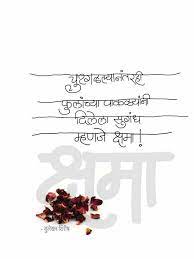 चुरगळल्यानंतरही
फुलांच्या पाकळ्यांनी
दिलेला सुगंध
म्हणजे क्षमा !
क्षमा
- सुलेखन